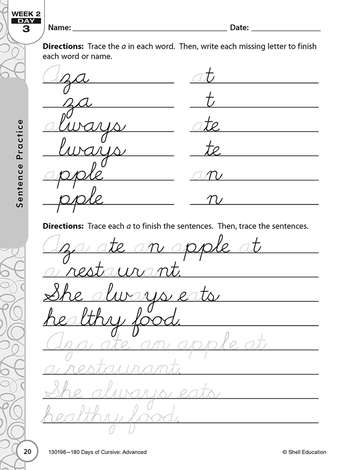 WEEK 2
DAY
3
Name: Date:
Directions: Trace the a in each word. Then, write each missing letter to finish
each word or name.
Aza at
za t
always ate
lways te
apple an
pple n
Directions: Trace each a to finish the sentences. Then, trace the sentences.
Aza ate an apple at
a restaurant.
She always eats
healthy food.
Aza ate an apple at
a restaurant.
She always eats
healthy food.
Sentence Practice
20 130196—180 Days of Cursive: Advanced © Shell Education